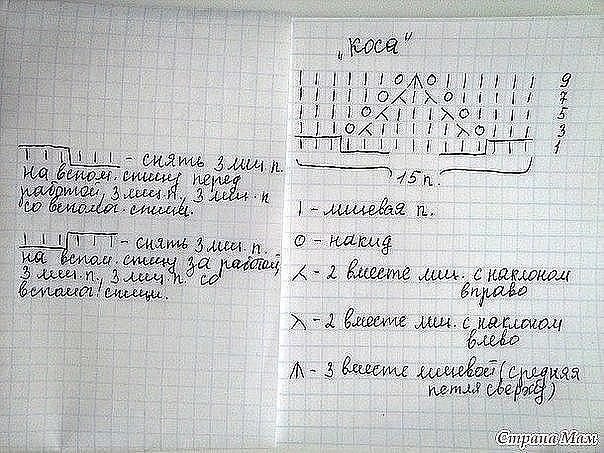 „Коса"
9
7
5
3
1
15 п.
- снять 3 лиц п.
на вспом. спицу перед
работой, 3 лиц п., 3 лиц. п
со вспомог. спицы.
- снять 3 лиц. п.
на вспом. спицу за работой,
3 лиц. п., 3 лиц п. со
вспомог. спицы.
| - лицевая п.
О - накид
⋌ - 2 вместе лиц. с наклоном
вправо
⋋ - 2 вместе лиц. с наклоном
влево
⩚ - 3 вместе лицевой (средняя
петля сверху)
Страна Мам